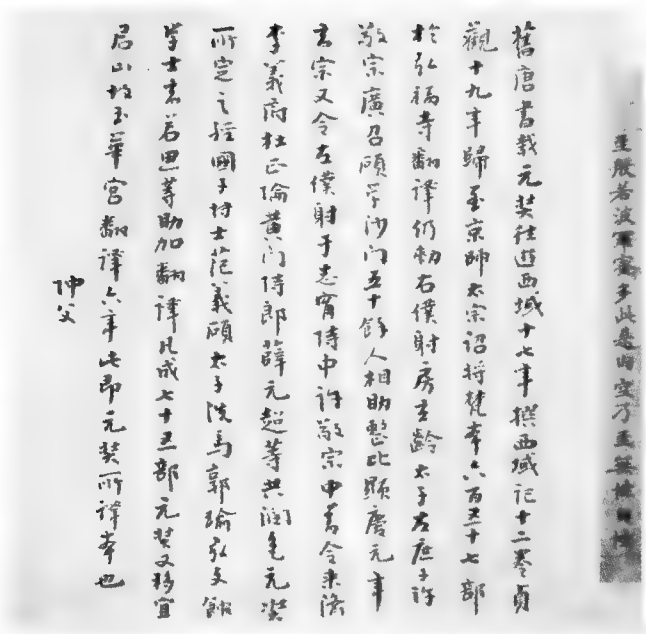 舊唐書載元奘往遊西域十七年撰西域記十二卷貞
觀十九年歸至京師太宗詔將梵本六百五十七部
於弘福寺翻譯仍勅右僕射房玄齡太子左庶子許
敬宗廣召碩學沙門五十餘人相助整比顯慶元年
玄宗又令左僕射于志寧侍中許敬宗中書令來濟
李義府杜正倫黃門侍郎薛元超等共潤色元奘
所定之經國子博士范義碩太子洗馬郭瑜弘文館
學士高若思等助加翻譯凡成七十五部元奘又移宜
君山故玉華宮翻譯六年此即元奘所譯本也
仲父
般若波羅蜜多此是